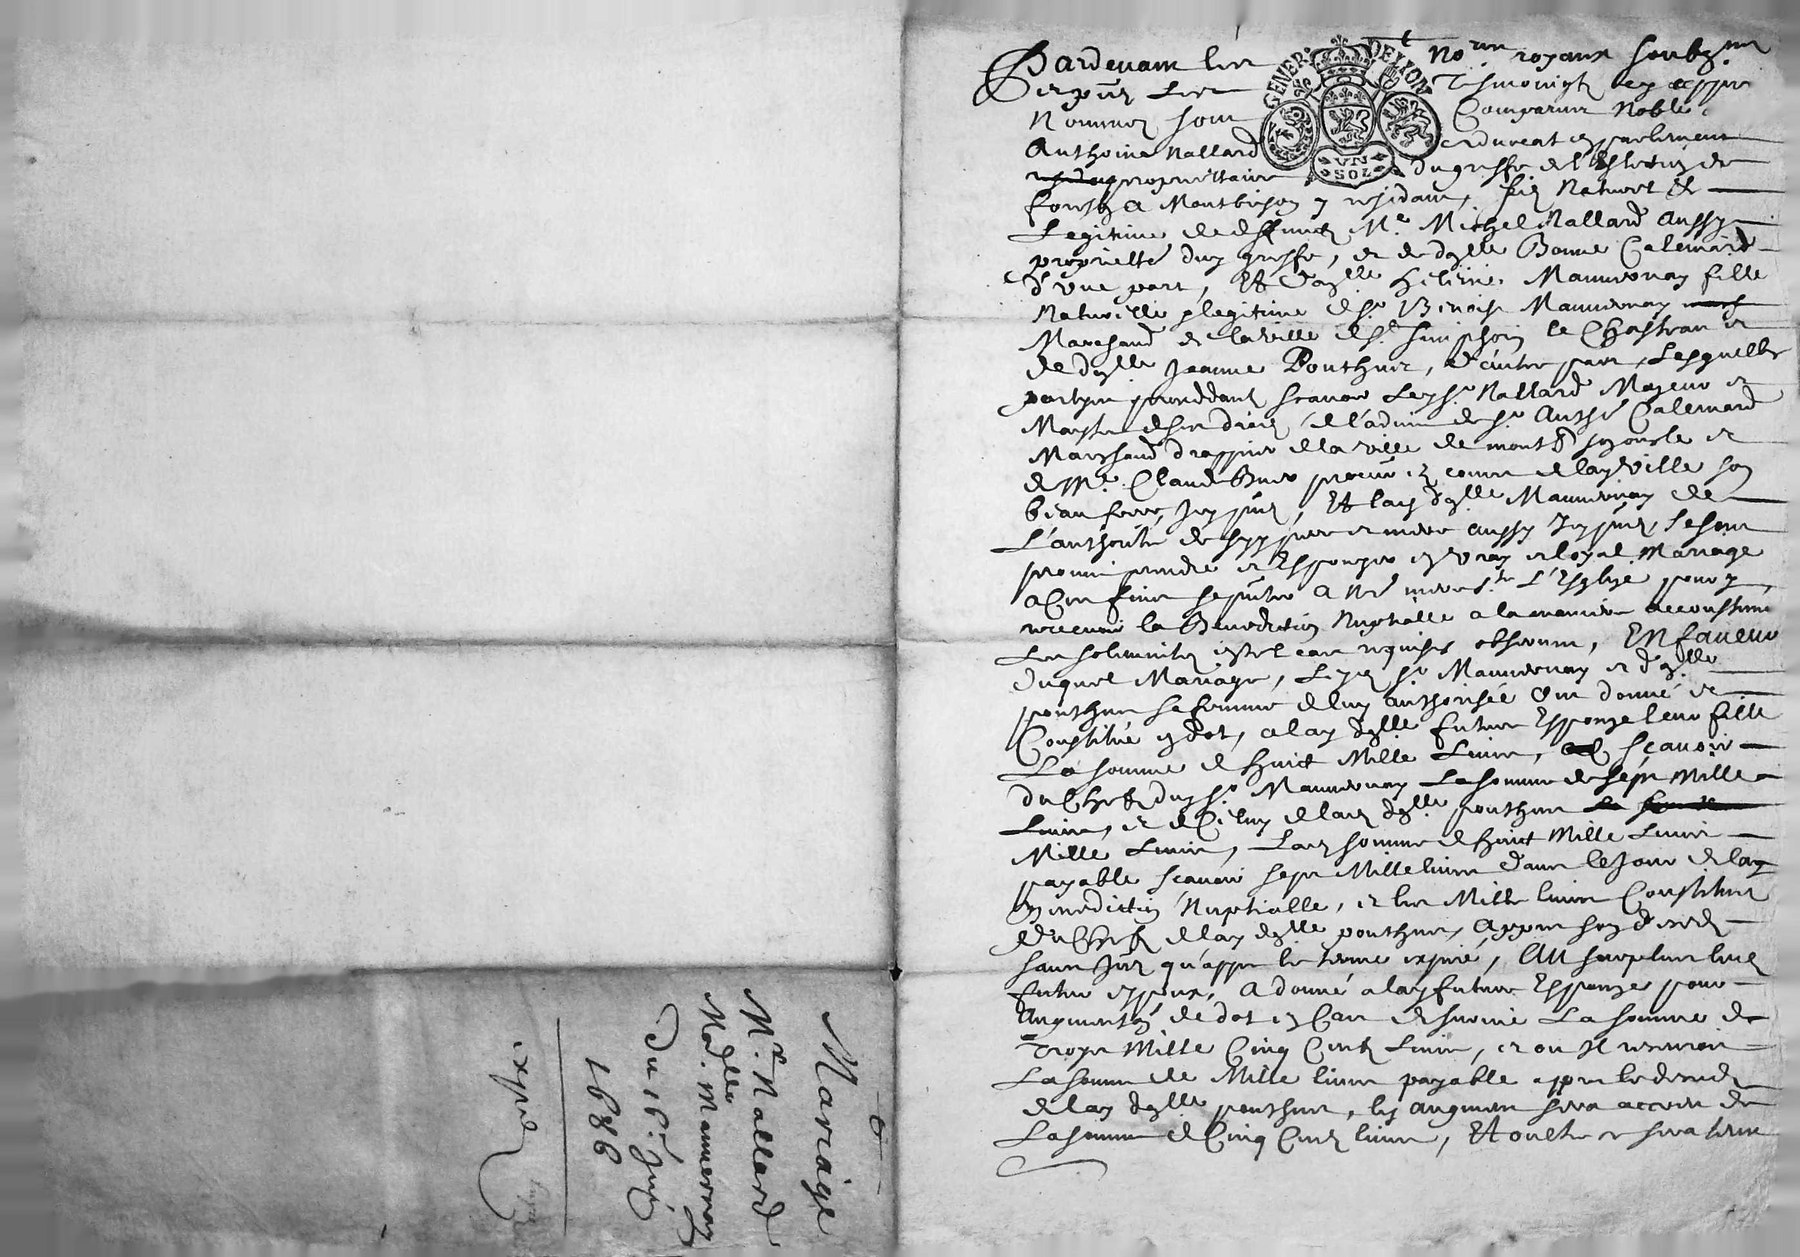 Pardevant les No.res royaux soubz.nes
et pñs les Tesmoingtz cy appres
Nommez sont Comparus Noble
Anthoine Nallard advocat en parlement
proprietaire du greffe de l'Eslection de
forestz A Montbrison y residant, filz Naturel &
Legitime de deffunct Me. Michel Nallard Aussy
propriette dud greffe, et de dglle Bonne Calemard
d'une part, Et Dаglle Heleine Mauvernay fille
Naturelle & legitime de sr. Benoist Mauvernay
Marchand de la ville de St. Simphorien le Chasteau et
de dglle Jeanne Ponthus, d'autre part, Lesquelles
partyes proceddant scavoir led sr. Nallard Majeur et
Maystre de ses droitz de l'advis de sr. Calemard
Marchand drappier de la ville de son oncle et
de Me. Claude procur. en cour de lad ville son
beau frere, Icy pñs, Et lad dglle Mauvernay de
L'authorité de sesd pere et mere aussy Icy pñs, se sont
promis prendre et Espouzer en vray et loyal Mariage
a Ces fins se pñter A Nre mere Ste. L'Esglise pour y
recevoir la Benediction Nuptialle a la maniere accoustumee
Les solemnitez en tel cas requises observees, EN faveur
duquel Mariage, Lesd sr. Mauvernay et dglle
ponthus sa femme de luy authorisée Ont donné et
Constitué en dot, a lad dglle future Espouze leur fille
La somme de huict Mille Livres, scavoir
du Chef dud sr. Mauvernay La somme de sept Mille
Livres, et de Celuy de lad dglle. ponthus
Mille Livres, Lad somme de huict Mille Livres
payable scavoir sept Mille livres dans le Jour de lad
Benediction Nuptialle, et les Mille livres Constitues
du Chef de lad dglle ponthus, Appres son deced
sans qu'appres le terme expiré, AU surplus led
futur espoux, A donné a lad future Espouze pour
Augment de dot en Cas de survie La somme de
Troys Mille Cinq Centz Livres, et ou
La somme de Mille livres payable appres le deced
de lad dglle ponthus, led augment sera accreu de
La somme de Cinq Centz livres, Et oultre ce sera tenu
Mariage
Mr. Nallard
Madlle. Mauvernay
Du 16.
1686
expℓ.